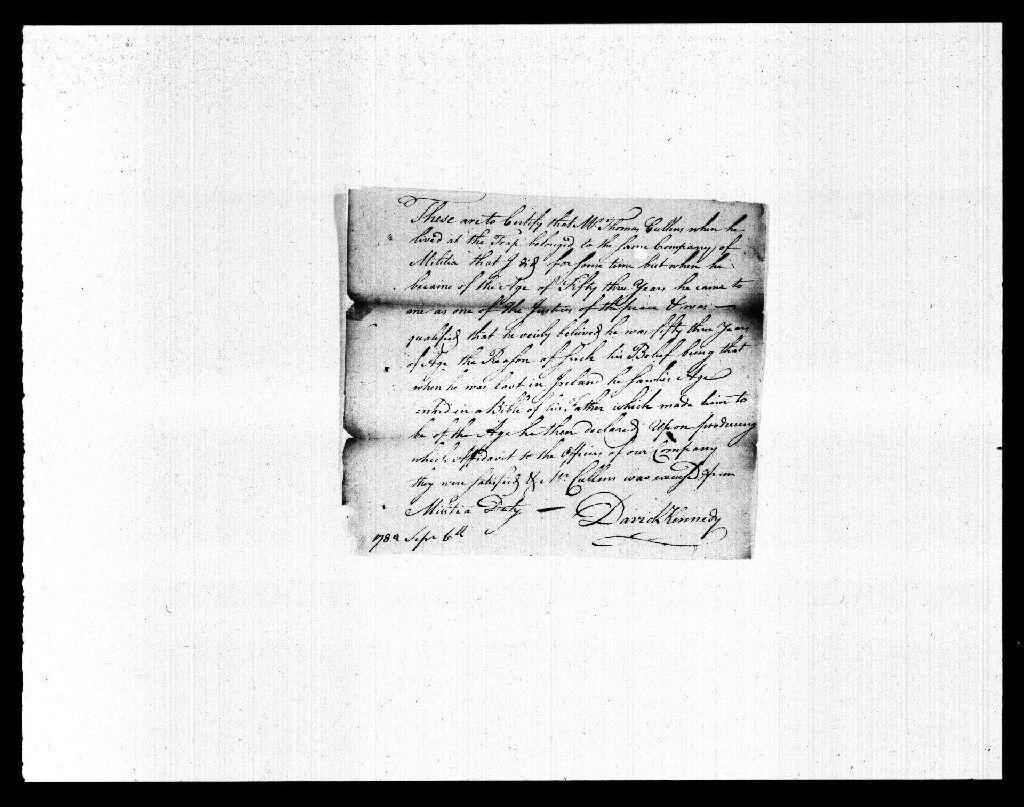 These are to Certify that Mr. Thomas Cullens when he
lived at the Trap belonged to the same Company of
Militia that I did for some time but when he
became of the Age of Fifty three Years he came to
me as one of the Justices of the peace & was
qualified that he verily believed he was fifty three Years
of Age the Reason of such his Belief being that
when he was last in Ireland he saw his Age
in a Bible of his Father which made him to
be of the Age he then declared Upon producing
which Affidavit to the Officers of our Company
they were satisfied & Mr Cullens was excused from
Militia Duty — David Kennedy
Sepr 6th